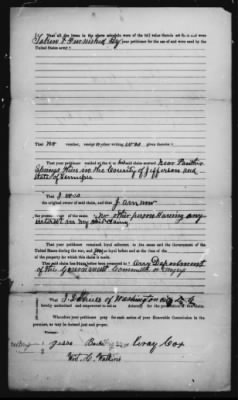 That all the items in the above schedule were of the full value therein set forth and were
Taken & Furnished by your petitioner for the use of and were used by the
United States army
That No voucher, receipt or other writing was given therefor
That your petitioner resided at the time said claim accrued near Panther
Springs then in the County of Jefferson and
State of Tennessee
That I was
the original owner of said claim, and that I am now
the present owner of the same no other person having any
interest in my said claim
That your petitioner remained loyal adherent to the cause and the Government of the
United States during the war, and was so loyal before and at the time of the
of the property for which this claim is made.
That said claim has before been presented to any Department
of the Government Committee or Congress
That of Washington City D.C.
hereby authorized and empowered to act as attorney for the prosecution of this claim.
Wherefore your petitioner prays for such action of your Honorable Commission in the
premises, as may be deemed just and proper.
Witness
Cox
Wm. C. Watkins